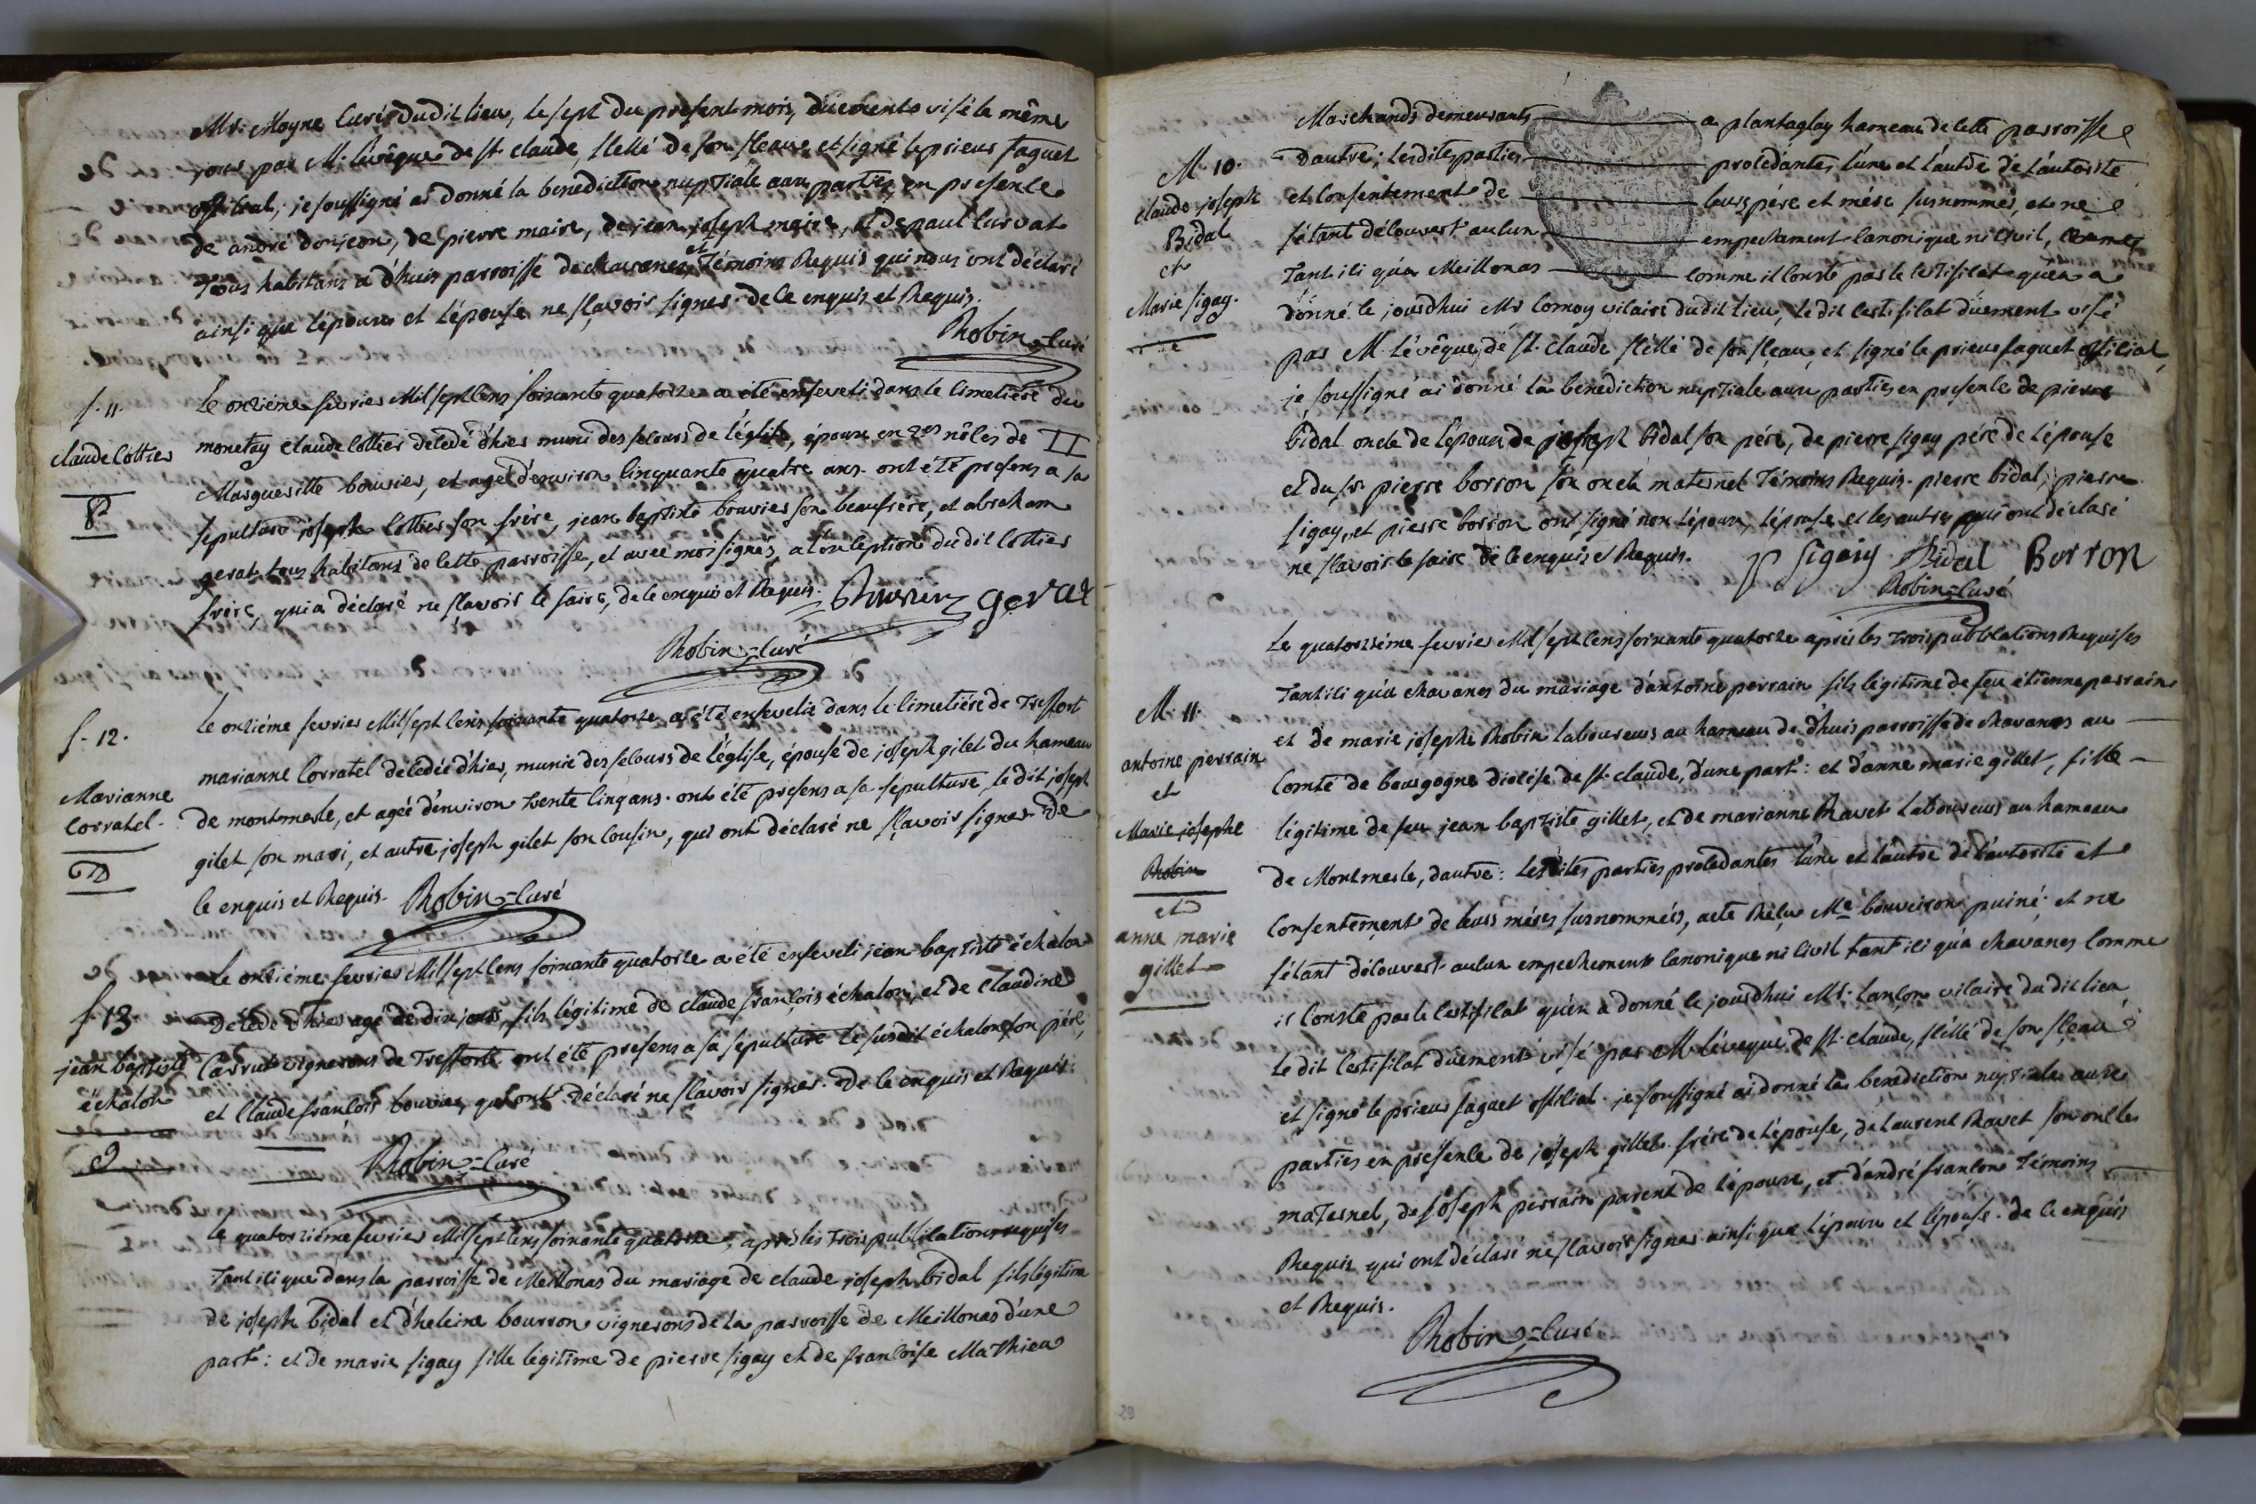 Mr. Moyne Curé dudit lieu, le sept du present mois, düement visé le même
jour par M. Levêque de st. claude, scellé de son sceau et signé leprieur faguet
official; je soussigné ai donné la benediction nuptiale aux parties, en presence
de andré donjeon, de pierre maire, de jean joseph maire, et de paul Curvat
Tous habitans a d'huis parroisse de chavanes, et Témoins Requis qui nous ont déclaré
ainsi que l'époux et l'épouse ne sçavoir signer de ce enquis et Requis.
Robin = Curé
s. 11.
Claude Cottier
8d
le onziéme fevrier Mil sept cens soixante quatorze a été enseveli dans le Cimetiére du
monetay Claude Cottier décedé d'hier muni des secours de l'église, époux en 2es nôces de
Margueritte bouvier, et agé d'environ Cinquante quatre ans. ont été presens a sa
sepulture joseph Cottier son frére, jean baptiste bouvier son beaufrére, et abraham
gerat tous habitans de cette parroisse, et avec moi signés, a l'exception du dit Cottier
frére, qui a déclaré ne sçavoir le faire, de ce enquis et Requis.
Buvier gerat
Robin = Curé
s. 12.
Marianne
Corratel.
D
le onziéme fevrier Mil sept Cens soixante quatorze a été ensevelie dans le Cimetiére de Treffort
marianne Corratel décedée d'hier, munie des secours de l'église, épouse de joseph gilet du hameau
de montmerle, et agée d'environ trente cinq ans. ont été presens a sa sepulture, le dit joseph
gilet son mari, et autre joseph gilet son Cousin, qui ont déclaré ne sçavoir signer de
ce enquis et Requis. Robin = Curé
s. 13
jean baptiste
échalon
le onziéme fevrier Mil sept Cens soixante quatorze a été enseveli jean baptiste échalon
décedé d'hier agé de dix jours, fils légitime de claude françois échalon, et de Claudine
Carrut vignerons de Treffort. ont été presens a sa sepulture le susdit échalon son pére,
et Claude françois bouvier, qui ont déclaré ne sçavoir signer. De ce enquis et Requis.
Robin = Curé
le quatorziéme fevrier Mil sept Cens soixante quatorze, aprés les trois publications requises
Tant ici que dans la parroisse de Meillonas du mariage de claude joseph bidal fils légitime
de joseph bidal et d'heleine bourron vignerons de la parroisse de Meillonas d'une
part: et de marie sigay fille légitime de pierre sigay et de francoise Mathieu
M. 10.
Claude joseph
Bidal
et
Marie sigay.
Marchands demeurants a plantaglay hameau de cette parroisse
d'autre; lesdites parties procédantes l'une et l'autre de l'autorité
et Consentement de leurs pére et mére surnommés, et ne
s'étant découvert aucun empechement Canonique ni Civil,
Tant ici qu'a Meillonas comme il Conste par le Certificat qu'en a
donné le jourd'hui Mr Cornoy vicaire dudit lieu, le dit certificat düement visé
par M. Levêque de st. Claude scéllé de son sceau, et signé le prieur faguet official,
je soussigné ai donné la benediction nuptiale aux parties en presence de pierre
bidal oncle de l'époux de joseph bidal son pére, de pierre sigay pére de l'épouse
et du sr pierre borron son oncle maternel Témoins Requis. pierre bidal, pierre
sigay, et pierre borron ont signé non l'époux, l'épouse et les autres qui ont déclaré
ne sçavoir le faire de ce enquis et Requis. p sigaiy Bidal Borron
Robin = Curé
M. 11.
antoine perrain
et
Marie josephe
Robin
et
anne marie
gillet
Le quatorziéme fevrier Mil sept cens soixante quatorze aprés les trois publications Requises
Tant ici qu'a chavanes du mariage d'antoine perrain fils légitime de feu étienne perrain
et de marie josephe Robin laboureurs au hameau de d'huis parroisse de chavanes au
Comté de bourgogne diocése de st. claude, d'une part: et d'anne marie gillet, fille
légitime de feu jean baptiste gillet, et de marianne Ravet laboureurs au hameau
de Montmerle, d'autre: lesdites parties procédantes l'une et l'autre de l'autorité et
Consentement de leurs méres surnommées, acte Reçu Me bouveiron puiné et ne
s'étant découvert aucun empechement Canonique ni Civil tant ici qu'a chavanes Comme
il Conste par le Certificat qu'en a donné le jourd'hui Mr. Lançon vicaire du dit lieu
le dit Certificat düement visé par M. Levêque de st. claude, scéllé de son sceau
et signé le prieur faguet official. je soussigné ai donné la benediction nuptiale aux
parties en presence de joseph gillet frére de l'épouse, de laurent Ravet son oncle
maternel, de joseph perrain parent de l'époux, et d'andré françon Témoins
Requis qui ont déclaré ne sçavoir signer ainsi que l'époux et l'épouse. de ce enquis
et Requis.
Robin = Curé
29